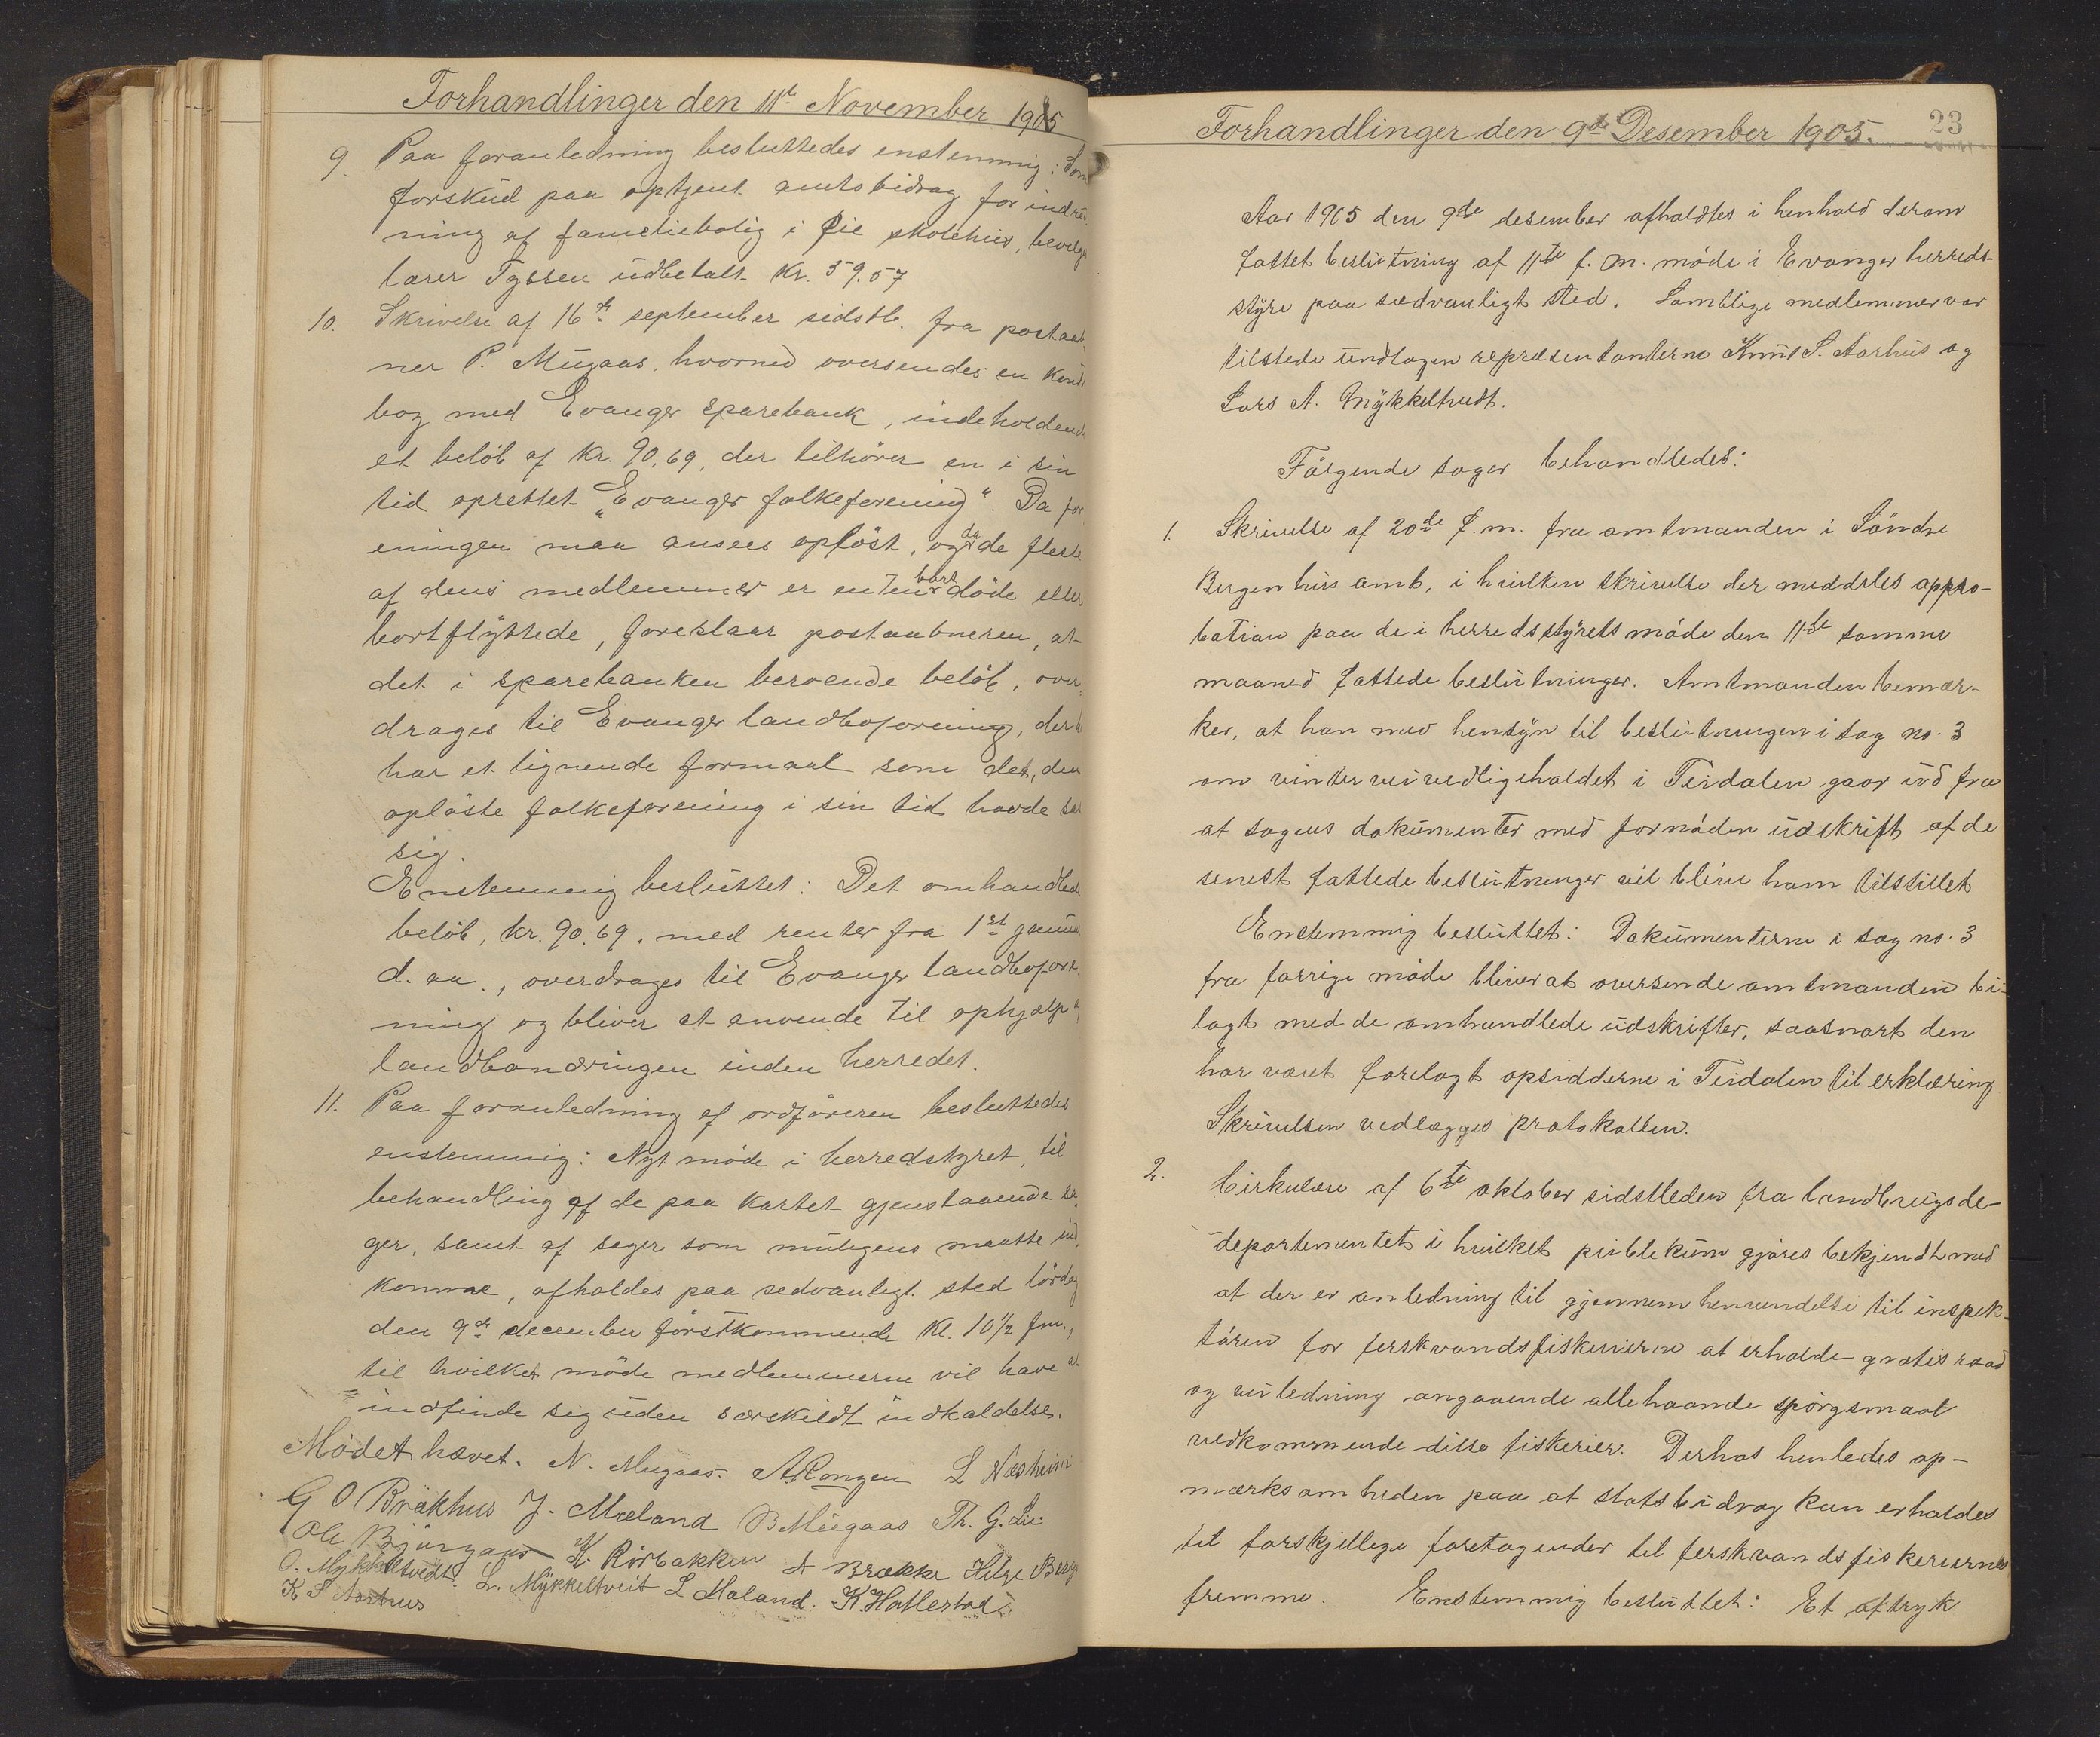 Forhandlinger den 11te November 1905
9. Paa foranledning besluttedes enstemmig: Som
forskud paa optjent amtsbidrag for indred-
ning af familiebolig i Øie skolehus, bevilges
lærer Tyssen udbetalt Kr. 59.57
10. Skrivelse af 16de september sidstl. fra postaab-
ner P. Mugaas, hvormed oversendes en kontra
bog med Evanger sparebank, indeholdende
et beløb af kr. 90,69, der tilhører en i sin
tid oprettet „Evanger folkeforening“. Da for
eningen maa ansees opløst, og da de fleste
af dens medlemmer er enten bort døde eller
bortflyttede, foreslaar postaabneren, at
det i sparebanken beroende beløb, over
drages til Evanger landboforening, der
har et lignende formaal som det, den
opløste folkeforening i sin tid havde sat
sig.
Enstemmig besluttet: Det omhandlede
beløb, kr. 90,69, med renter fra 1st januar
d. aa., overdrages til Evanger landbofore-
ning og bliver at anvende til ophjælp af
landbonæringen inden herredet.
11. Paa foranledning af ordføreren besluttedes
enstemmig: Nyt møde i herredstyret, til
behandling af de paa kartet gjenstaaende sa-
ger, samt af sager som muligens maatte ind
komme, afholdes paa sedvanligt sted lørdag
den 9de december førstkommende kl. 10 1/2 fm.,
til hvilket møde medlemmerne vil have at
indfinde sig uden særskildt indkaldelse.
Mødet hævet. N. Mugaas. A Rongen L Næsheim
G O Brækhus J. Mæland B Mügaas Th. G. Lie
Ole Bjørgaas K. Rörbakken A Brække Helge Berge
O. Mykkeltvedt. L. Mykkeltveit L Mæland. K Hallestad
K S Aarhus
Forhandlinger den 9de Desember 1905. 23
Aar 1905 den 9de desember afholdtes i henhold derom
fattet beslutning af 11te f. m. møde i Evanger herreds-
styre paa sædvanligt sted. Samtlige medlemmer var
tilstede undtagen repræsentanterne Knut S. Aarhus og
Lars A. Mykkeltvedt.
Følgende sager behandledes:
1. Skrivelse af 20de f. m. fra amtmanden i Søndre
Bergenhus amt, i hvilken skrivelse der meddeles appro-
bation paa de i herredsstyrets møde den 11te samme
maaned fattede beslutninger. Amtmanden bemær-
ker, at han med hensyn til beslutningen i sag no. 3
om vinterveivedligeholdet i Teidalen gaar ud fra
at sagens dokumenter med fornøden udskrift af de
senest fattede beslutninger vil blive ham tilstillet
Enstemmig besluttet: Dokumenterne i sag no. 3
fra forrige møde bliver at oversende amtmanden bi-
lagt med de omhandlede udskrifter, saasnart den
har været forelagt opsidderne i Teidalen til erklæring
Skrivelsen vedlægges protokollen.
2. Cirkulære af 6te oktober sidstleden fra landbrugsde-
departementet i hvilket publikum gjøres bekjendt med
at der er anledning til gjennem henvendelse til inspek-
tøren for ferskvandsfiskerierne at erholde gratis raad
og veiledning angaaende allehaande spørgsmaal
vedkommende disse fiskerier. Derhos henledes op-
mærksomheden paa at statsbidrag kan erholdes
til forskjellige foretagender til ferskvandsfiskeriernes
fremme. Enstemmig besluttet: Et aftryk